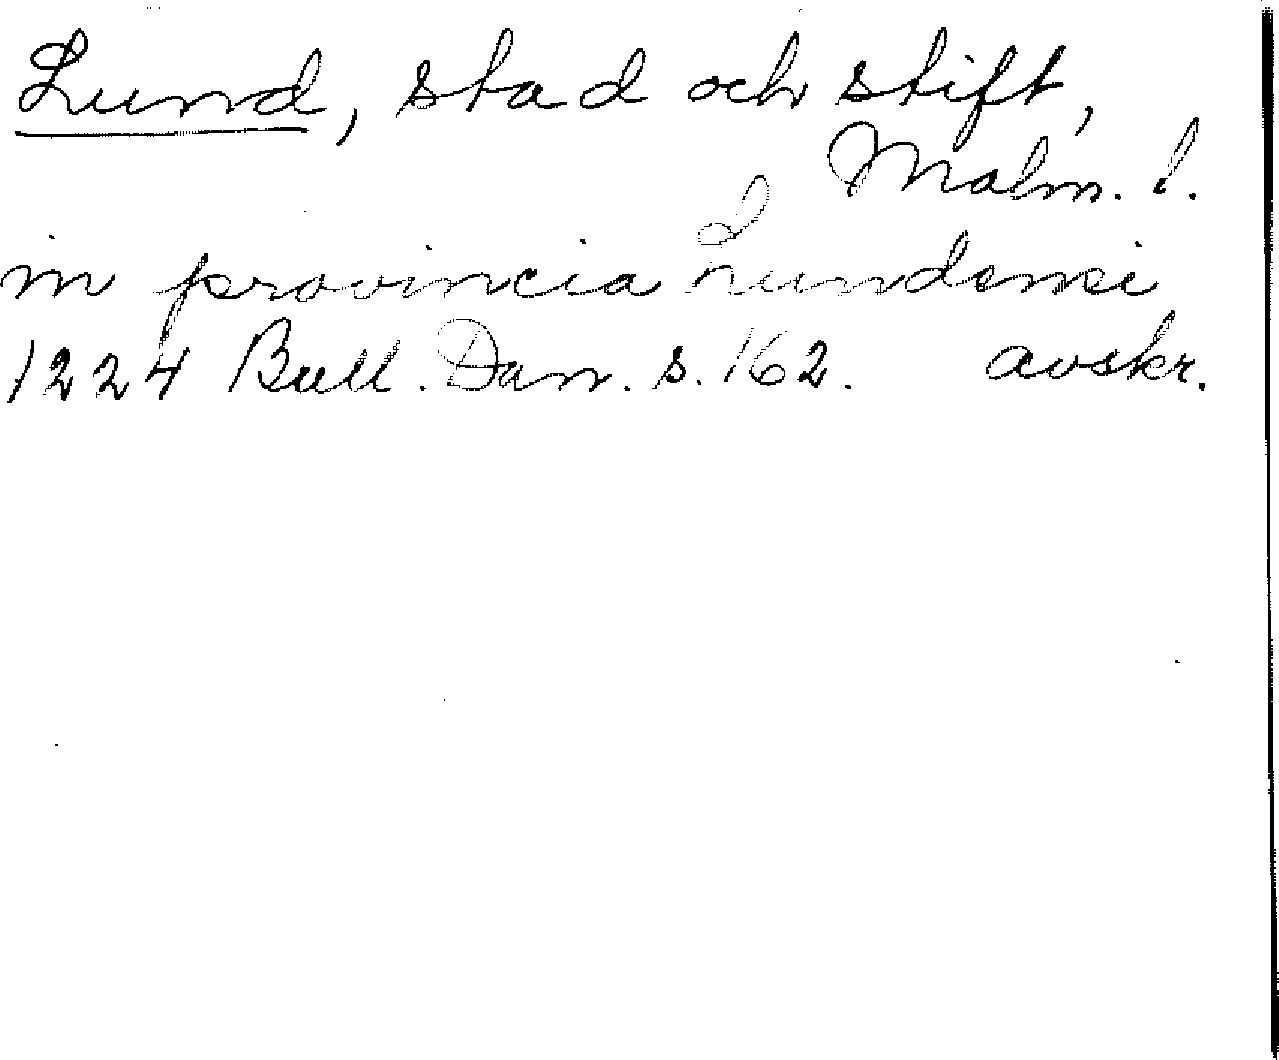 Lund, stad och stift,
Malm. l.
in provincia Lundensi
1224 Bull. Dan. s. 162. avskr.